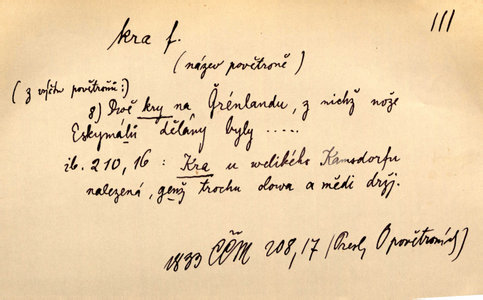 111
kra f.
(název povětroně)
(z výčtu povětroňů:)
8) Dvě kry na Grénlandu, z nichž nože
Eskymálů dělány byly .....
ib. 210, 16 : Kra u welikého Kamsdorfu
nalezená, genž trochu olowa a mědi drží.
1833 ČČM 208, 17 (Presl, O povětroních)